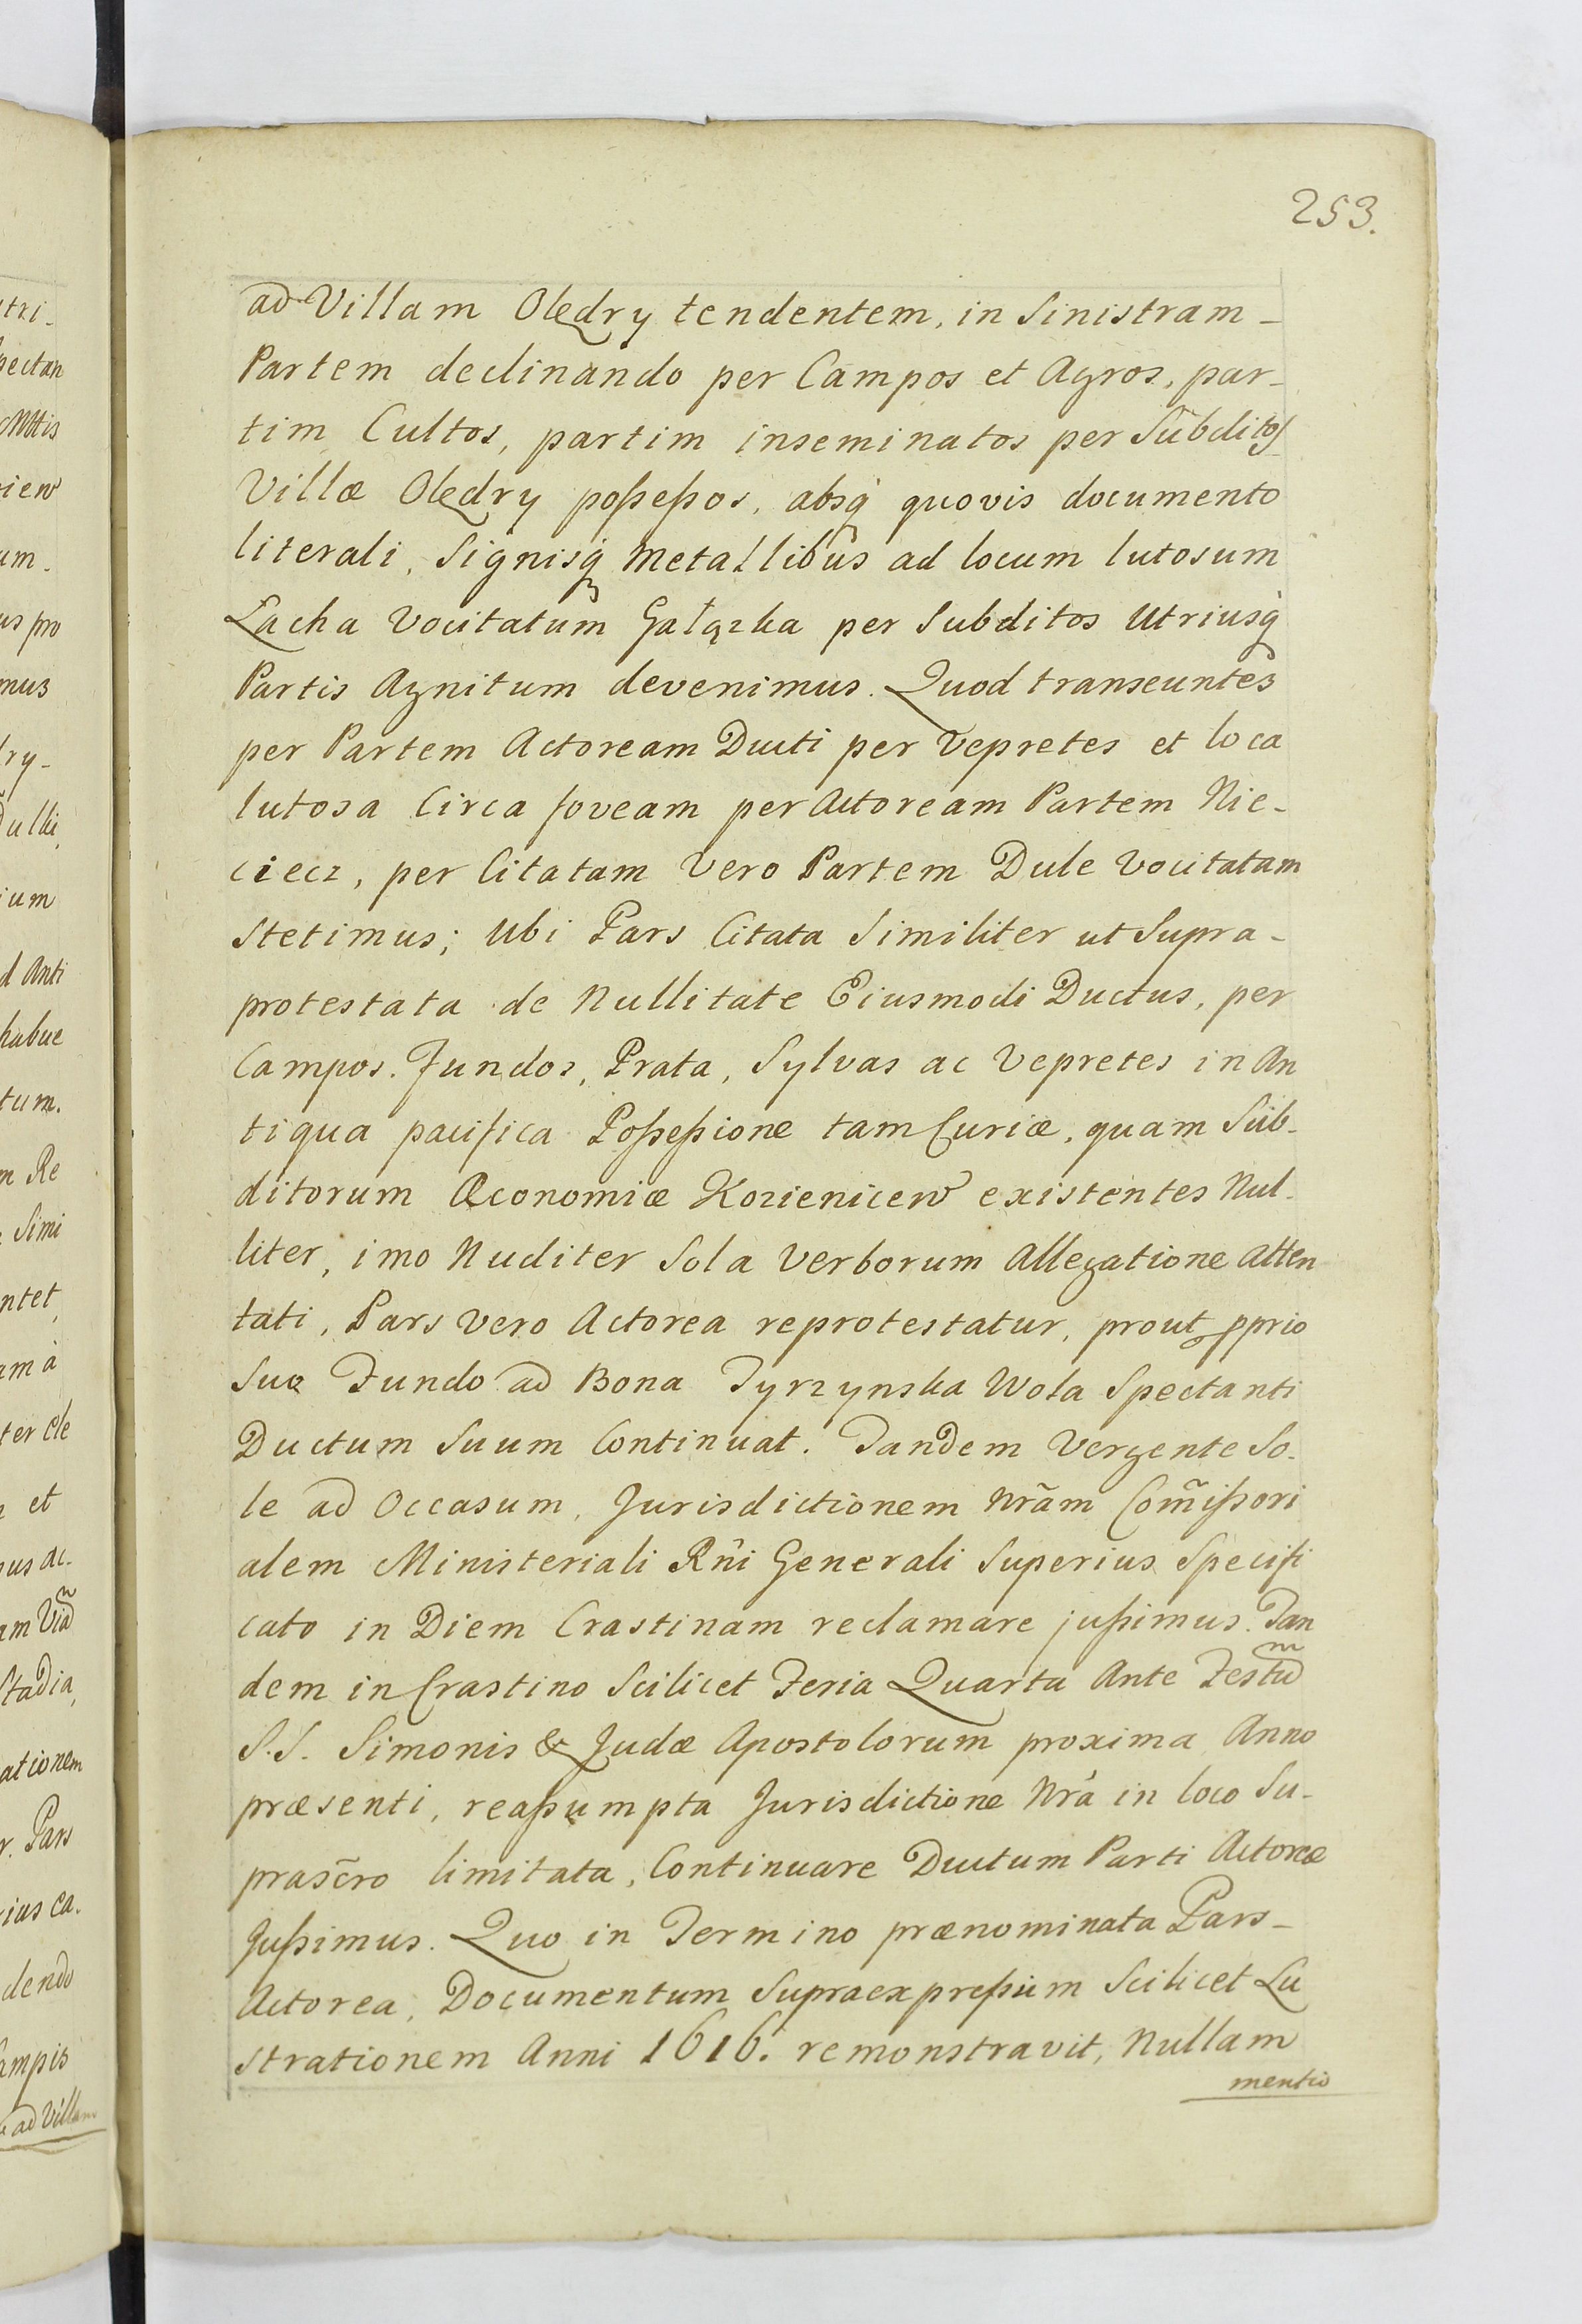 253.
ad Villam Olędry tendentem, in Sinistram -
Partem declinando per Campos et Agros, par-
tim Cultos, partim inseminatos per Subditos
Villæ Olędry poßeßos, absq; quovis documento
literali, Signisq; Metallibus ad locum lutosum
Łacha Vocitatum Gałązka per Subditos Utriusq;
Partis Agnitum devenimus. Quod transeuntes
per Partem Actoream Ducti per Vepretes et loca
lutosa Circa foveam per Actoream Partem Nie-
ciecz, per Citatam Vero Partem Dule Vocitatam
Stetimus; Ubi Pars Citata Similiter ut Supra -
protestata de Nullitate Eiusmodi Ductus, per
Campos. Fundos, Prata, Sylvas ac Vepretes in An
tiqua pacifica Poßeßione tam Curiæ, quam Sub-
ditorum Œconomiæ Kozienicew existentes Nul-
liter, imo Nuditer Sola Verborum Allegatione atten
tati, Pars Vero Actorea reprotestatur, prout pprio
Suo Fundo ad Bona Tyrzynska Wola Spectanti
Ductum Suum Continuat. Tandem Vergente So-
le ad Occasum, Jurisdictionem Nrãm Com̃ißori
alem Ministeriali Rñi Generali Superius Specifi
cato in Diem Crastinam reclamare jußimus. Tan
dem in Crastino Scilicet Feria Quarta Ante Festũ
S.S. Simonis & Judæ Apostolorum proxima Anno
præsenti, reaßumpta Jurisdictione Nrã in loco Su-
prasc̃ro limitata, Continuare Ductum Parti Actoreæ
Jußimus. Quo in Termino prænominata Pars -
Actorea, Documentum Supraexpreßum Scilicet Lu
strationem Anni 1616. remonstravit, Nullam
mentio